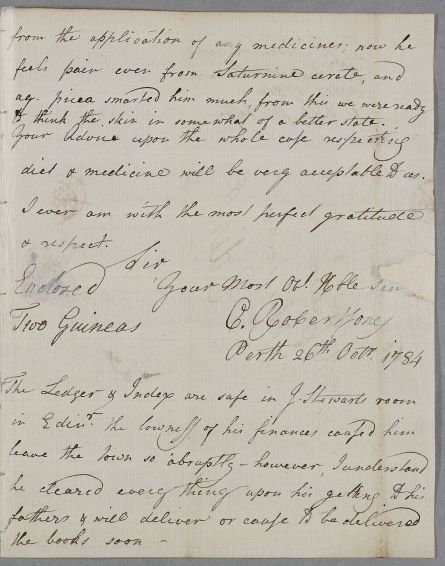 from the application of any medicines; now he
feels pain even from Saturnine cerate, and
aq. picea smarted him much, from this we were ready
to think the skin in somewhat of a better state.
Your advice upon the whole case respecting
diet & medicine will be very acceptable to us.
I ever am with the most perfect gratitude
& respect.
Sir
Enclosed Your Most Obt. Hble Ser
Two Guineas C. Robertson
Perth 26th Octr. 1784
The Ledger & Index are safe in J. Stewarts room
in Edinr. the lowness of his finances caused him
leave the town so abruptly - however, I understand
he cleared every thing upon his getting to his
fathers & will deliver or cause to be delivered
the books soon -